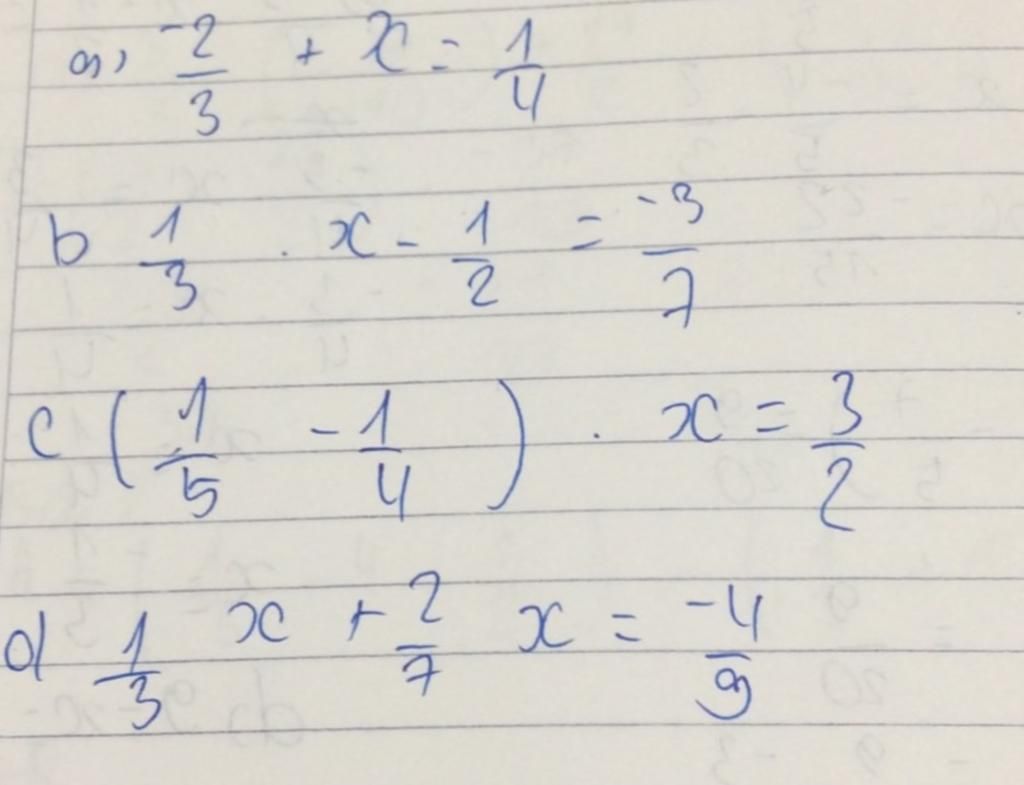 a) -2/3 + x = 1/4
b 1/3 . x - 1/2 = -3/7
c (1/5 - 1/4) . x = 3/2
d) 1/3 x + 2/7 x = -4/9